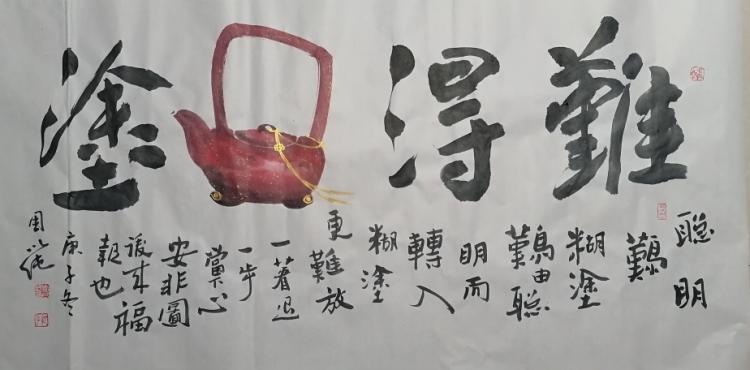 難得塗
聰明
難
糊塗
難由聰
明而
轉入
糊塗
更難放
一著退
一步
當下心
安非圖
後來福
報也
庚子冬
周